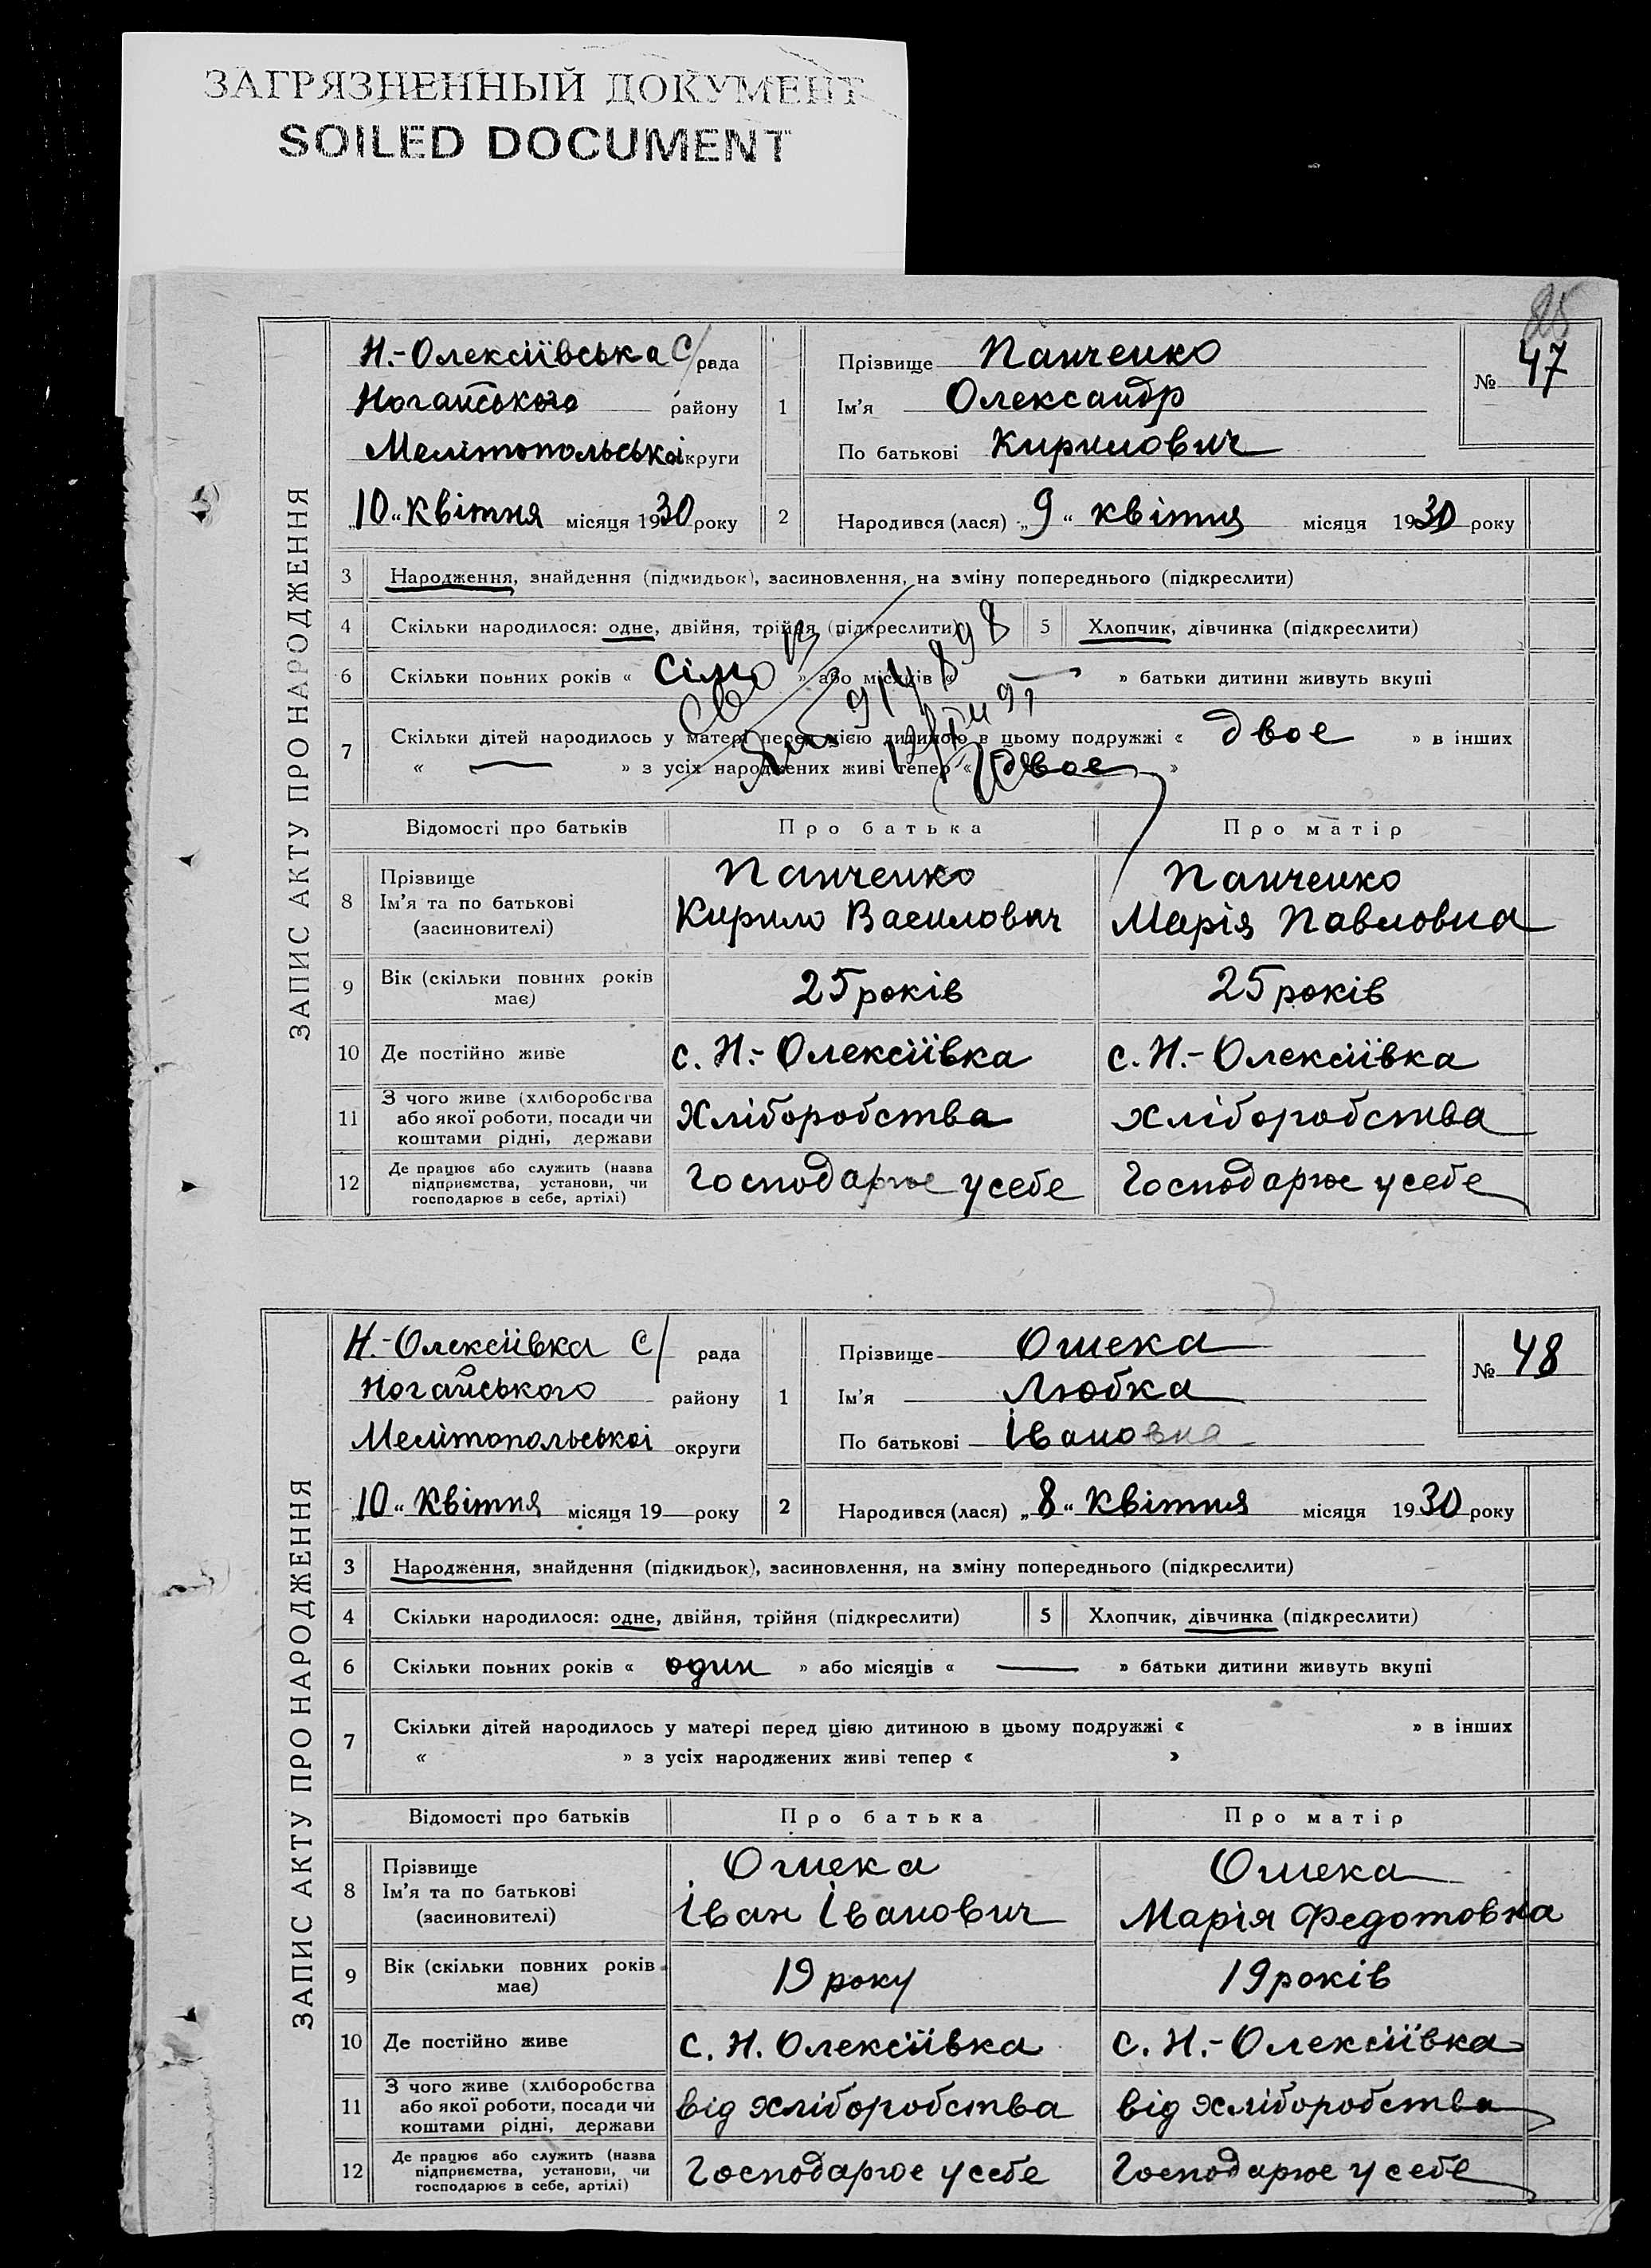 ЗАГРЯЗНЕННЫЙ ДОКУМЕНТ
SOILED DOCUMENT
ЗАПИС АКТУ ПРО НАРОДЖЕННЯ
Н.-Олексіївська с/рада
Ногайського району
Мелітопольської округи
„10“ Квітня місяця 1930 року
1
Прізвище Панченко
Ім'я Олександр
По батькові Кирилович
№ 47
2 Народився (лася) „9“ квітня місяця 1930 року
3 Народження, знайдення (підкидьок), засиновлення, на зміну попереднього (підкреслити)
4 Скільки народилося: одне, двійня, трійня (підкреслити) 5 Хлопчик, дівчинка (підкреслити)
6 Скільки повних років « сім » або місяців « » батьки дитини живуть вкупі
7 Скільки дітей народилось у матері перед цією дитиною в цьому подружжі « двое » в інших
« — » з усіх народжених живі тепер « двое »
Відомості про батьків Про батька Про матір
8 Прізвище Ім'я та по батькові (засиновителі)
Панченко Кирило Василович
Панченко Марія Павловна
9 Вік (скільки повних років має) 25 років 25 років
10 Де постійно живе с. Н.-Олексіївка с. Н.-Олексіївка
11 З чого живе (хліборобства або якої роботи, посади чи коштами рідні, держави Хліборобства хліборобства
12 Де працює або служить (назва підприємства, установи, чи господарює в себе, артілі) Господарює у себе Господарює у себе
ЗАПИС АКТУ ПРО НАРОДЖЕННЯ
Н.-Олексіівка с/ рада
Ногайського району
Мелітопольської округи
„10“ Квітня місяця 19— року
1
Прізвище Ошека
Ім'я Любка
По батькові Івановна
№ 48
2 Народився (лася) „8“ Квітня місяця 1930 року
3 Народження, знайдення (підкидьок), засиновлення, на зміну попереднього (підкреслити)
4 Скільки народилося: одне, двійня, трійня (підкреслити) 5 Хлопчик, дівчинка (підкреслити)
6 Скільки повних років « один » або місяців « — » батьки дитини живуть вкупі
7 Скільки дітей народилось у матері перед цією дитиною в цьому подружжі « » в інших
« » з усіх народжених живі тепер « »
Відомості про батьків Про батька Про матір
8 Прізвище Ім'я та по батькові (засиновителі)
Ошека Іван Іванович
Ошека Марія Федотовна
9 Вік (скільки повних років має) 19 року 19 років
10 Де постійно живе с. Н. Олексіївка с. Н.-Олексіївка
11 З чого живе (хліборобства або якої роботи, посади чи коштами рідні, держави від хліборобства від хліборобства
12 Де працює або служить (назва підприємства, установи, чи господарює в себе, артілі) Господарює у себе Господарює у себе